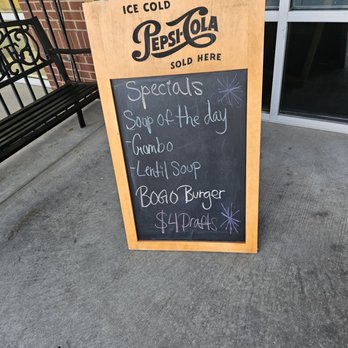 ICE COLD
PEPSI-COLA
SOLD HERE
Specials
Soup of the day
-Gombo
-Lentil Soup
BOGO Burger
$4 Drafts